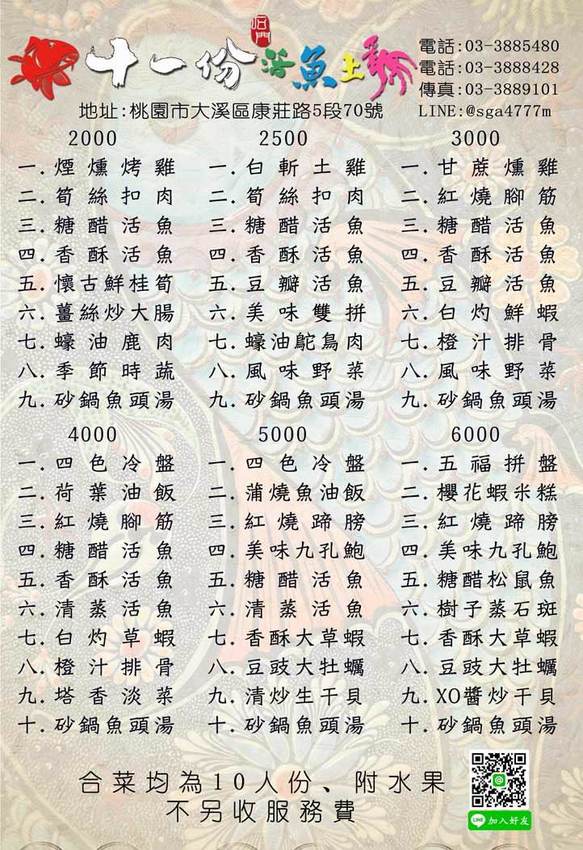 石門
十一份活魚土雞
電話:03-3885480
電話:03-3888428
傳真:03-3889101
地址:桃園市大溪區康莊路5段70號
LINE:@sga4777m
2000
一.煙燻烤雞
二.筍絲扣肉
三.糖醋活魚
四.香酥活魚
五.懷古鮮桂筍
六.薑絲炒大腸
七.蠔油鹿肉
八.季節時蔬
九.砂鍋魚頭湯
2500
一.白斬土雞
二.筍絲扣肉
三.糖醋活魚
四.香酥活魚
五.豆瓣活魚
六.美味雙拼
七.蠔油鴕鳥肉
八.風味野菜
九.砂鍋魚頭湯
3000
一.甘蔗燻雞
二.紅燒腳筋
三.糖醋活魚
四.香酥活魚
五.豆瓣活魚
六.白灼鮮蝦
七.橙汁排骨
八.風味野菜
九.砂鍋魚頭湯
4000
一.四色冷盤
二.荷葉油飯
三.紅燒腳筋
四.糖醋活魚
五.香酥活魚
六.清蒸活魚
七.白灼草蝦
八.橙汁排骨
九.塔香淡菜
十.砂鍋魚頭湯
5000
一.四色冷盤
二.蒲燒魚油飯
三.紅燒蹄膀
四.美味九孔鮑
五.糖醋活魚
六.清蒸活魚
七.香酥大草蝦
八.豆豉大牡蠣
九.清炒生干貝
十.砂鍋魚頭湯
6000
一.五福拼盤
二.櫻花蝦米糕
三.紅燒蹄膀
四.美味九孔鮑
五.糖醋松鼠魚
六.樹子蒸石斑
七.香酥大草蝦
八.豆豉大牡蠣
九.XO醬炒干貝
十.砂鍋魚頭湯
合菜均為10人份、附水果
不另收服務費
LINE 加入好友